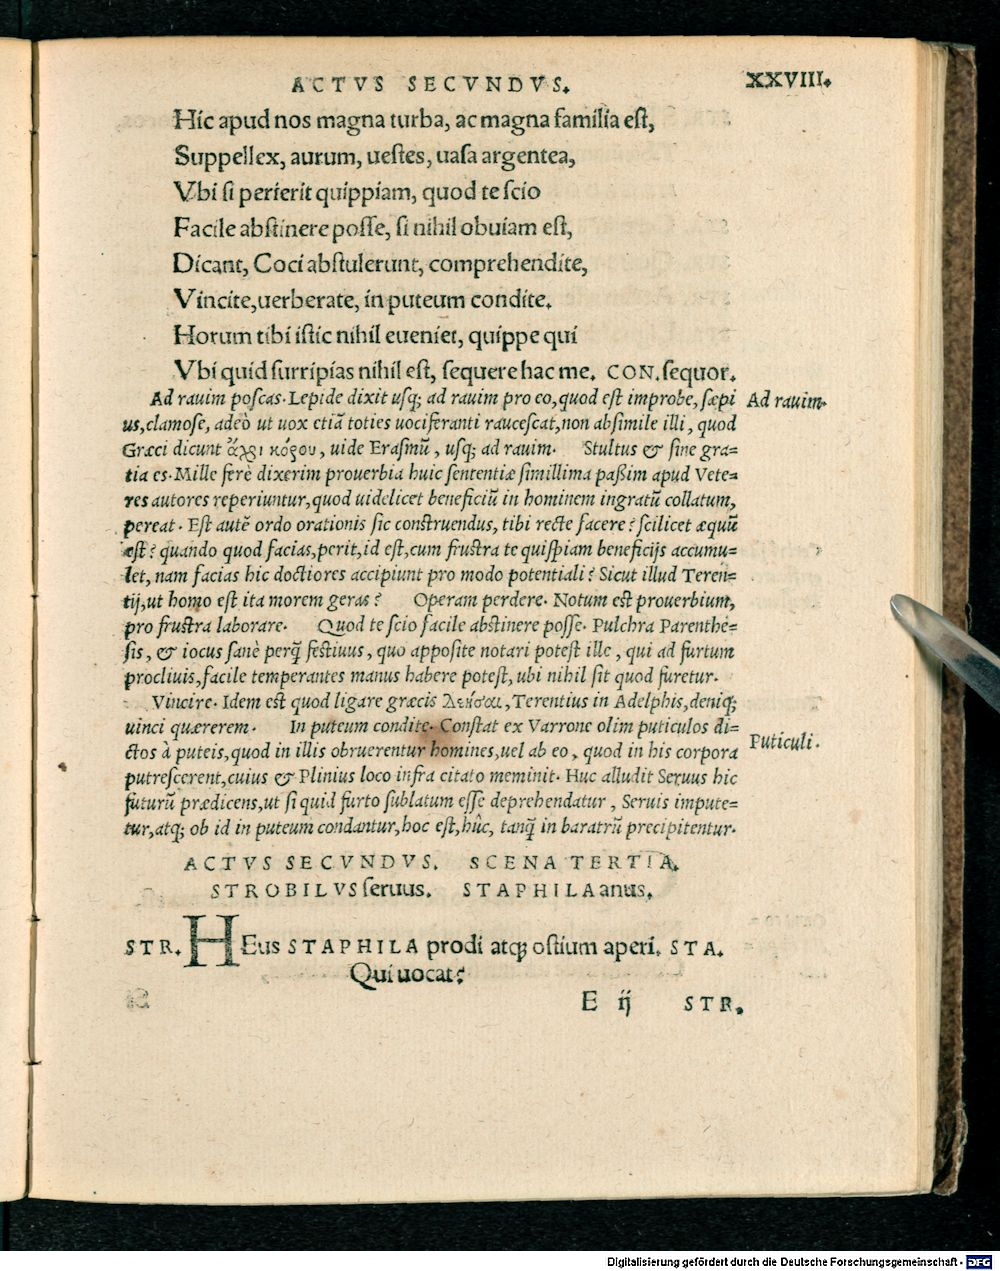 ACTVS SECVNDVS. XXVIII.
Hic apud nos magna turba, ac magna familia est,
Suppellex, aurum, uestes, uasa argentea,
Vbi si perierit quippiam, quod te scio
Facile abstinere posse, si nihil obuiam est,
Dicant, Coci abstulerunt, comprehendite,
Vincite,uerberate, in puteum condite.
Horum tibi istic nihil eueniet, quippe qui
Vbi quid surripias nihil est, sequere hac me. CON. sequor.
Ad rauim poscas. Lepide dixit usq; ad rauim pro eo, quod est improbe, sæpi Ad rauim.
us, clamose, adeò ut uox etiā toties uociferanti raucescat, non absimile illi, quod
Græci dicunt ἄχρι κόρου, uide Erasmū, usq; ad rauim. Stultus & sine gra=
tia es. Mille ferè dixerim prouerbia huic sententiæ simillima paßim apud Vete=
res autores reperiuntur, quod uidelicet beneficiū in hominem ingratū collatum,
pereat. Est autē ordo orationis sic construendus, tibi recte facere? scilicet æquū
est? quando quod facias, perit, id est, cum frustra te quispiam beneficijs accumu=
let, nam facias hic doctiores accipiunt pro modo potentiali? Sicut illud Teren=
tij, ut homo est ita morem geras? Operam perdere. Notum est prouerbium,
pro frustra laborare. Quod te scio facile abstinere posse. Pulchra Parenthe=
sis, & iocus sanè perq̄ festiuus, quo apposite notari potest ille, qui ad furtum
procliuis, facile temperantes manus habere potest, ubi nihil sit quod furetur.
Vincire. Idem est quod ligare græcis , Terentius in Adelphis, deniq;
uinci quærerem. In puteum condite. Constat ex Varrone olim puticulos di=
ctos à puteis, quod in illis obruerentur homines, uel ab eo, quod in his corpora Puticuli.
putrescerent, cuius & Plinius loco infra citato meminit. Huc alludit Seruus hic
futurū prædicens, ut si quid furto sublatum esse deprehendatur, Seruis impute=
tur, atq; ob id in puteum condantur, hoc est, hûc, tanq̄ in baratrū precipitentur.
ACTVS SECVNDVS. SCENA TERTIA.
STROBILVS seruus. STAPHILA anus.
STR. HEus STAPHILA prodi atq; ostium aperi. STA.
Qui uocat?
E ij STR.
Digitalisierung gefördert durch die Deutsche Forschungsgemeinschaft - DFG